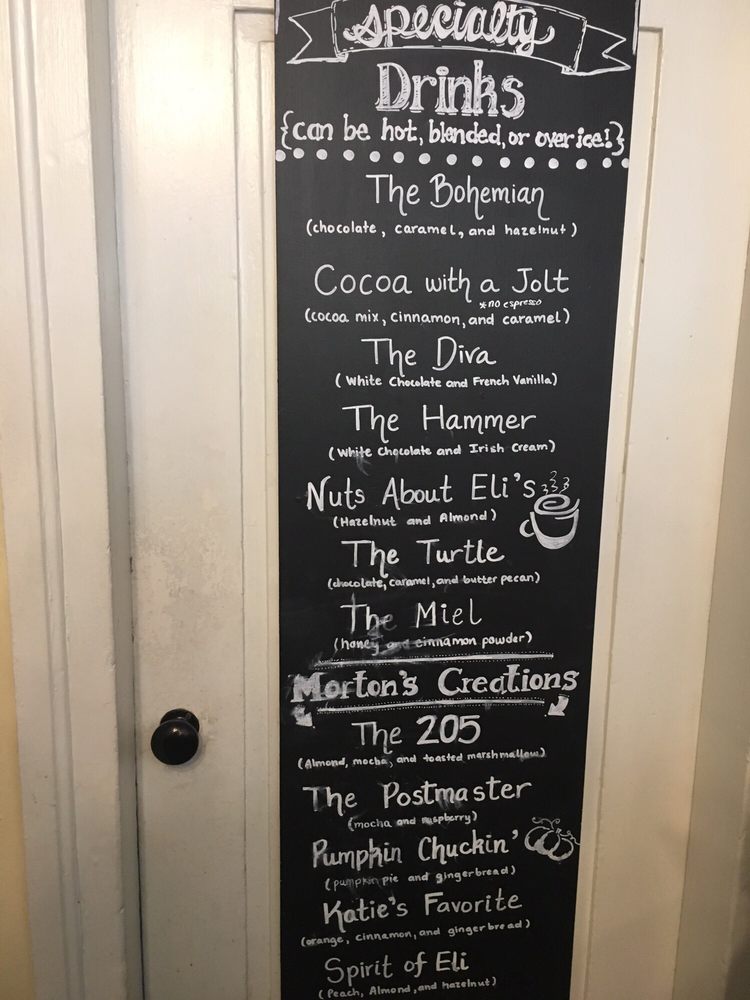 Specialty
Drinks
{can be hot, blended, or over ice!}
The Bohemian
(chocolate, caramel, and hazelnut)
Cocoa with a Jolt
*no espresso
(cocoa mix, cinnamon, and caramel)
The Diva
(White Chocolate and French Vanilla)
The Hammer
(White Chocolate and Irish Cream)
Nuts About Eli's
(Hazelnut and Almond)
The Turtle
(chocolate, caramel, and butter pecan)
The Miel
(honey and cinnamon powder)
Morton's Creations
The 205
(Almond, mocha, and toasted marshmallow)
The Postmaster
(mocha and raspberry)
Pumpkin Chuckin'
(pumpkin pie and gingerbread)
Katie's Favorite
(orange, cinnamon, and gingerbread)
Spirit of Eli
(Peach, Almond, and hazelnut)